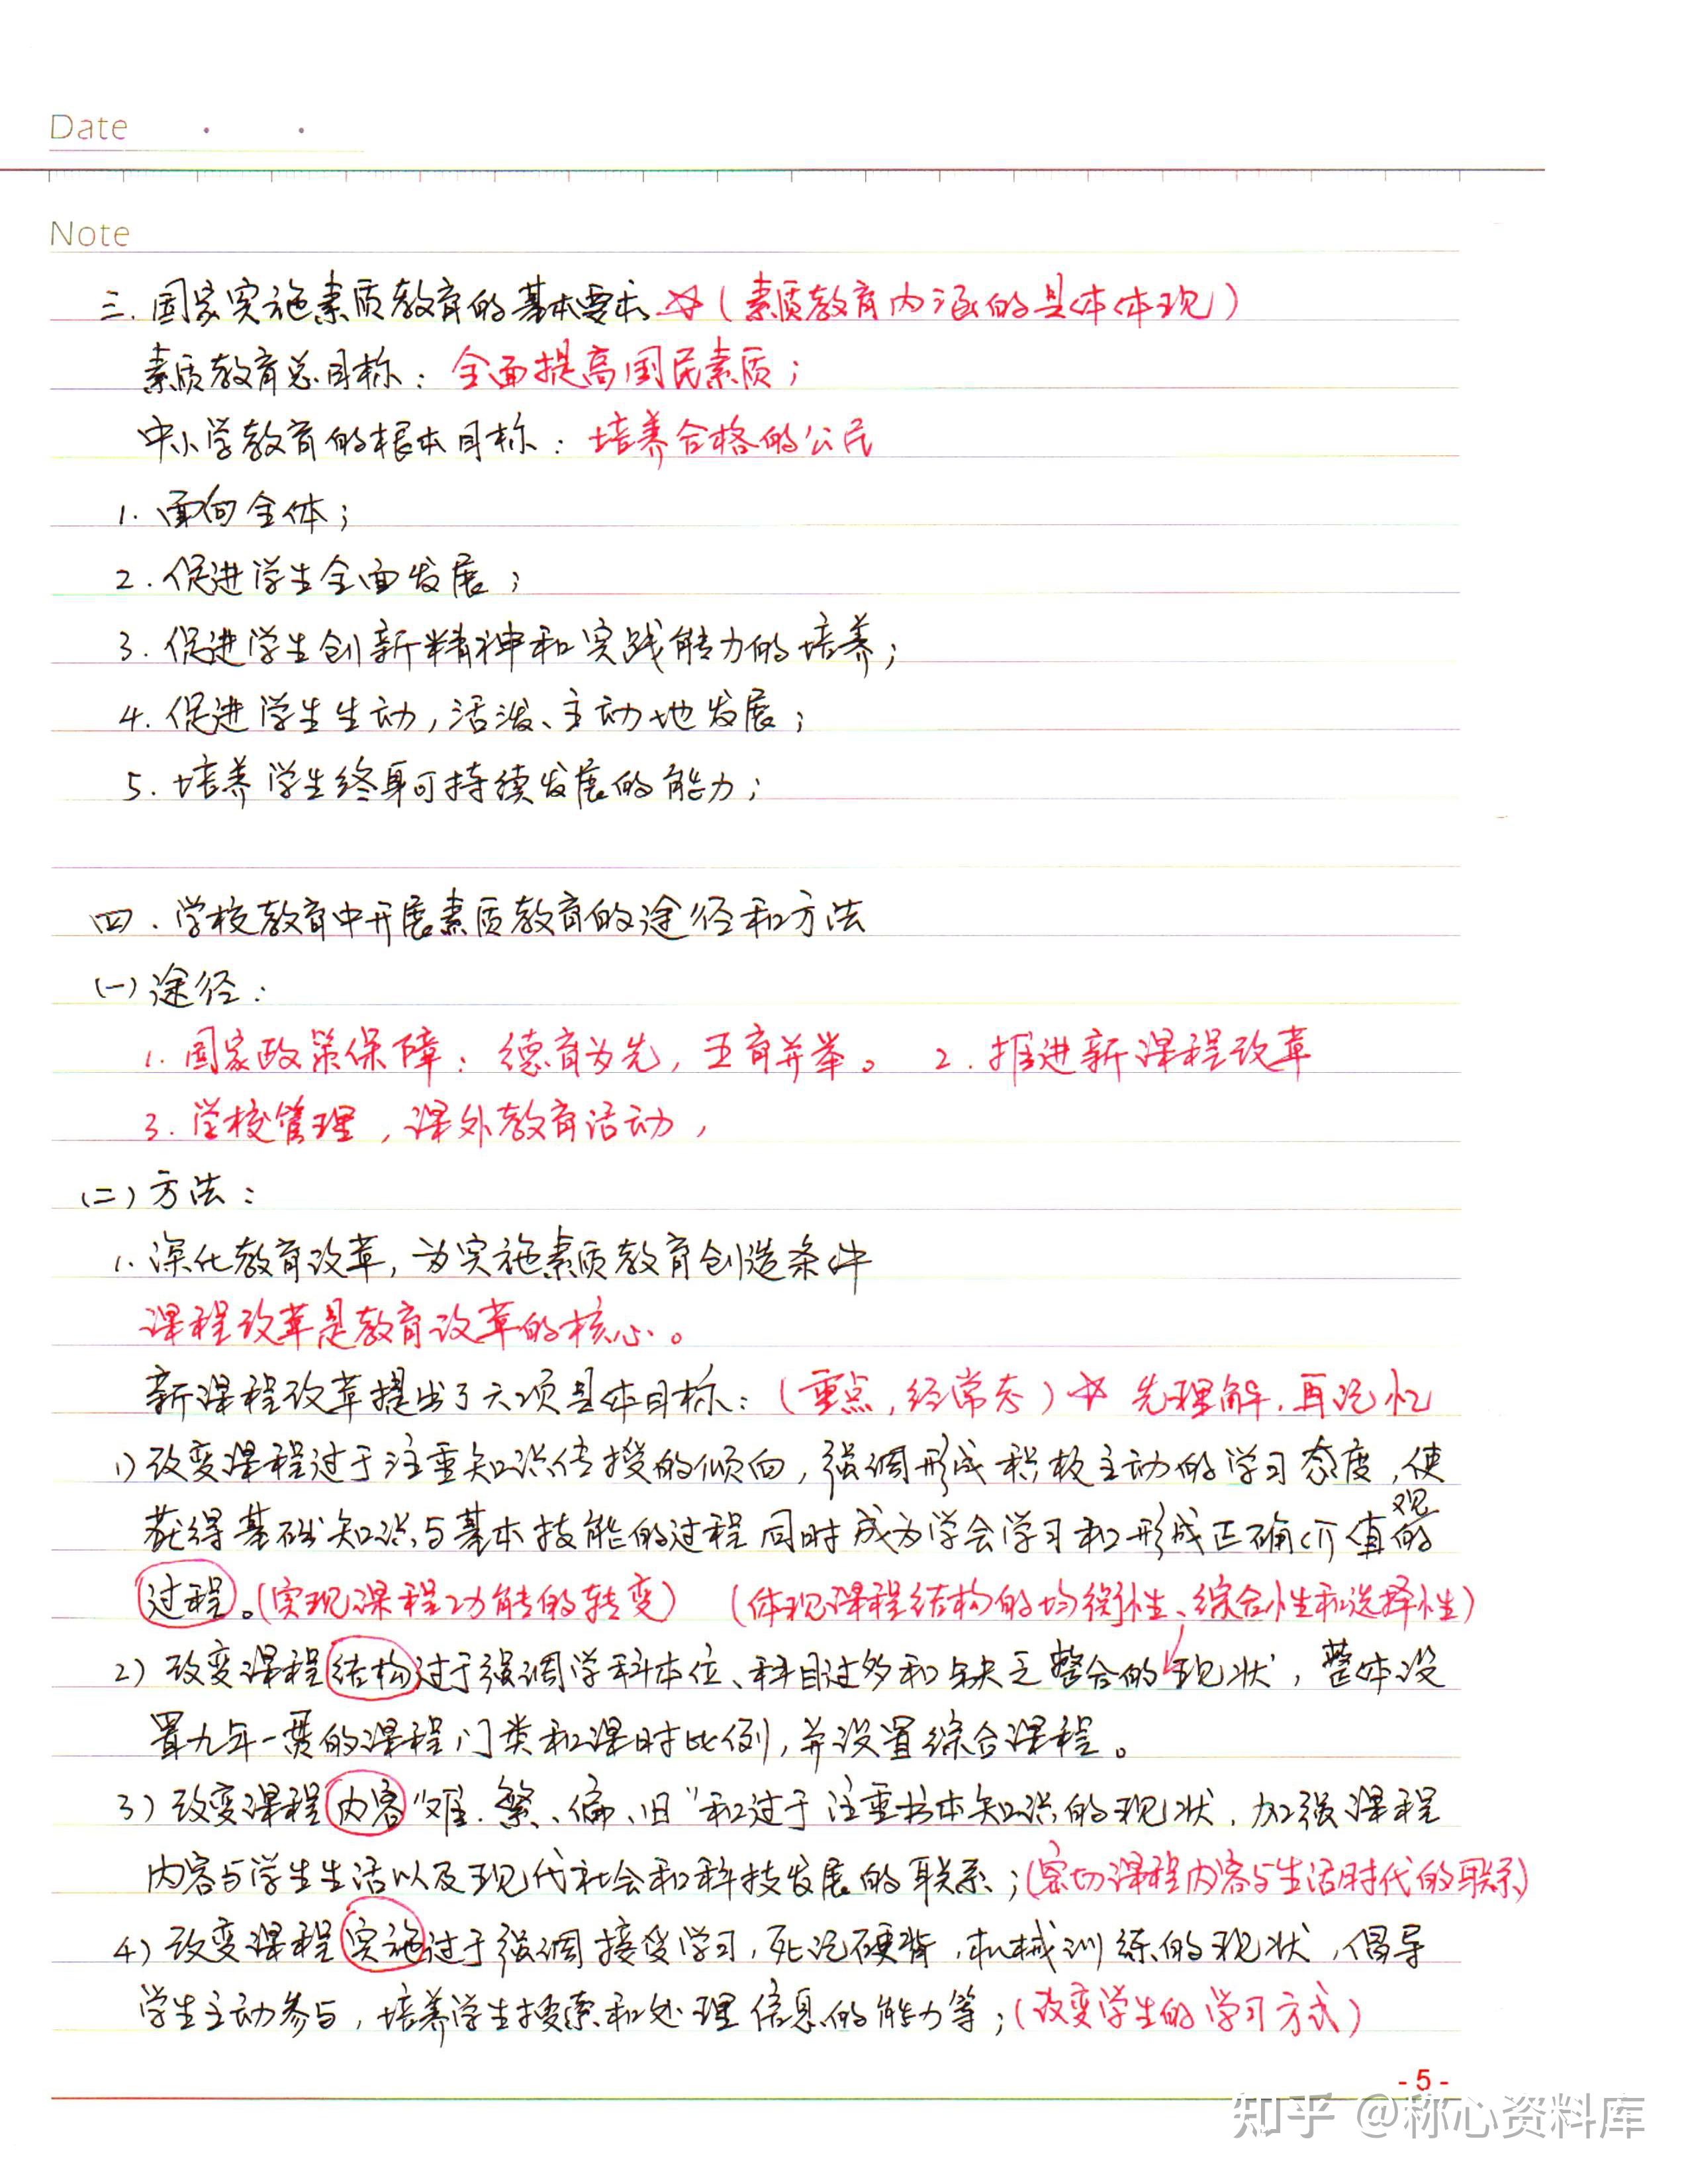 Date
Note
三.国家实施素质教育的基本要求☆(素质教育内涵的具体体现)
素质教育总目标:全面提高国民素质;
中小学教育的根本目标:培养合格的公民
1.面向全体;
2.促进学生全面发展;
3.促进学生创新精神和实践能力的培养;
4.促进学生生动,活泼、主动地发展;
5.培养学生终身可持续发展的能力;
四.学校教育中开展素质教育的途径和方法
(一)途径:
1.国家政策保障:德育为先,五育并举。 2.推进新课程改革
3.学校管理,课外教育活动,
(二)方法:
1.深化教育改革,为实施素质教育创造条件
课程改革是教育改革的核心。
新课程改革提出了六项具体目标:(重点,经常态)☆ 先理解.再记忆
1)改变课程过于注重知识传授的倾向,强调形成积极主动的学习态度,使
获得基础知识与基本技能的过程同时成为学会学习和形成正确价值观的
过程。(实现课程功能的转变) (体现课程结构的均衡性、综合性和选择性)
2)改变课程结构过于强调学科本位、科目过多和缺乏整合的现状,整体设
置九年一贯的课程门类和课时比例,并设置综合课程。
3)改变课程内容“难.繁、偏、旧”和过于注重书本知识的现状.加强课程
内容与学生生活以及现代社会和科技发展的联系;(密切课程内容与生活时代的联系)
4)改变课程实施过于强调接受学习,死记硬背.机械训练的现状,倡导
学生主动参与,培养学生搜索和处理信息的能力等;(改变学生的学习方式)
-5-
知乎 @称心资料库